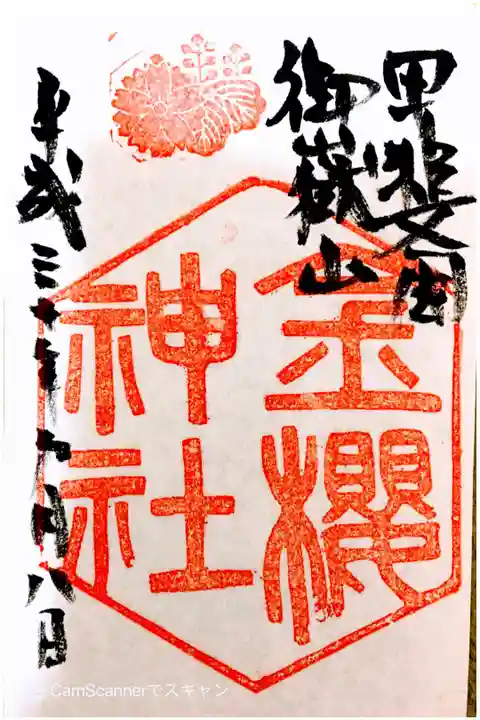 甲斐国
御嶽山
金櫻
神社
平成三十年十月八日
CamScannerでスキャン